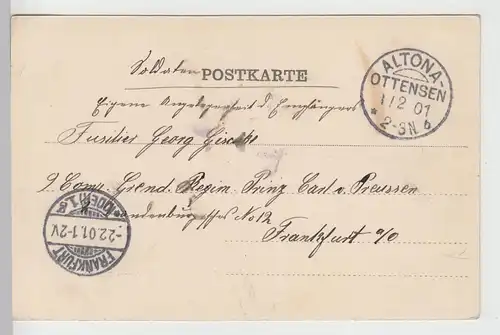 Soldaten POSTKARTE
Eigene Angelegenheit d. Empfängers
Füsilier Georg
9 Comp. Grend. Regim. Prinz Carl v. Preussen
No 12
Frankfurt a/O
ALTONA-
OTTENSEN
1/2 01
* 2-3N b
FRANKFURT
-2.2.01.1-2V.
(ODER) 1.S